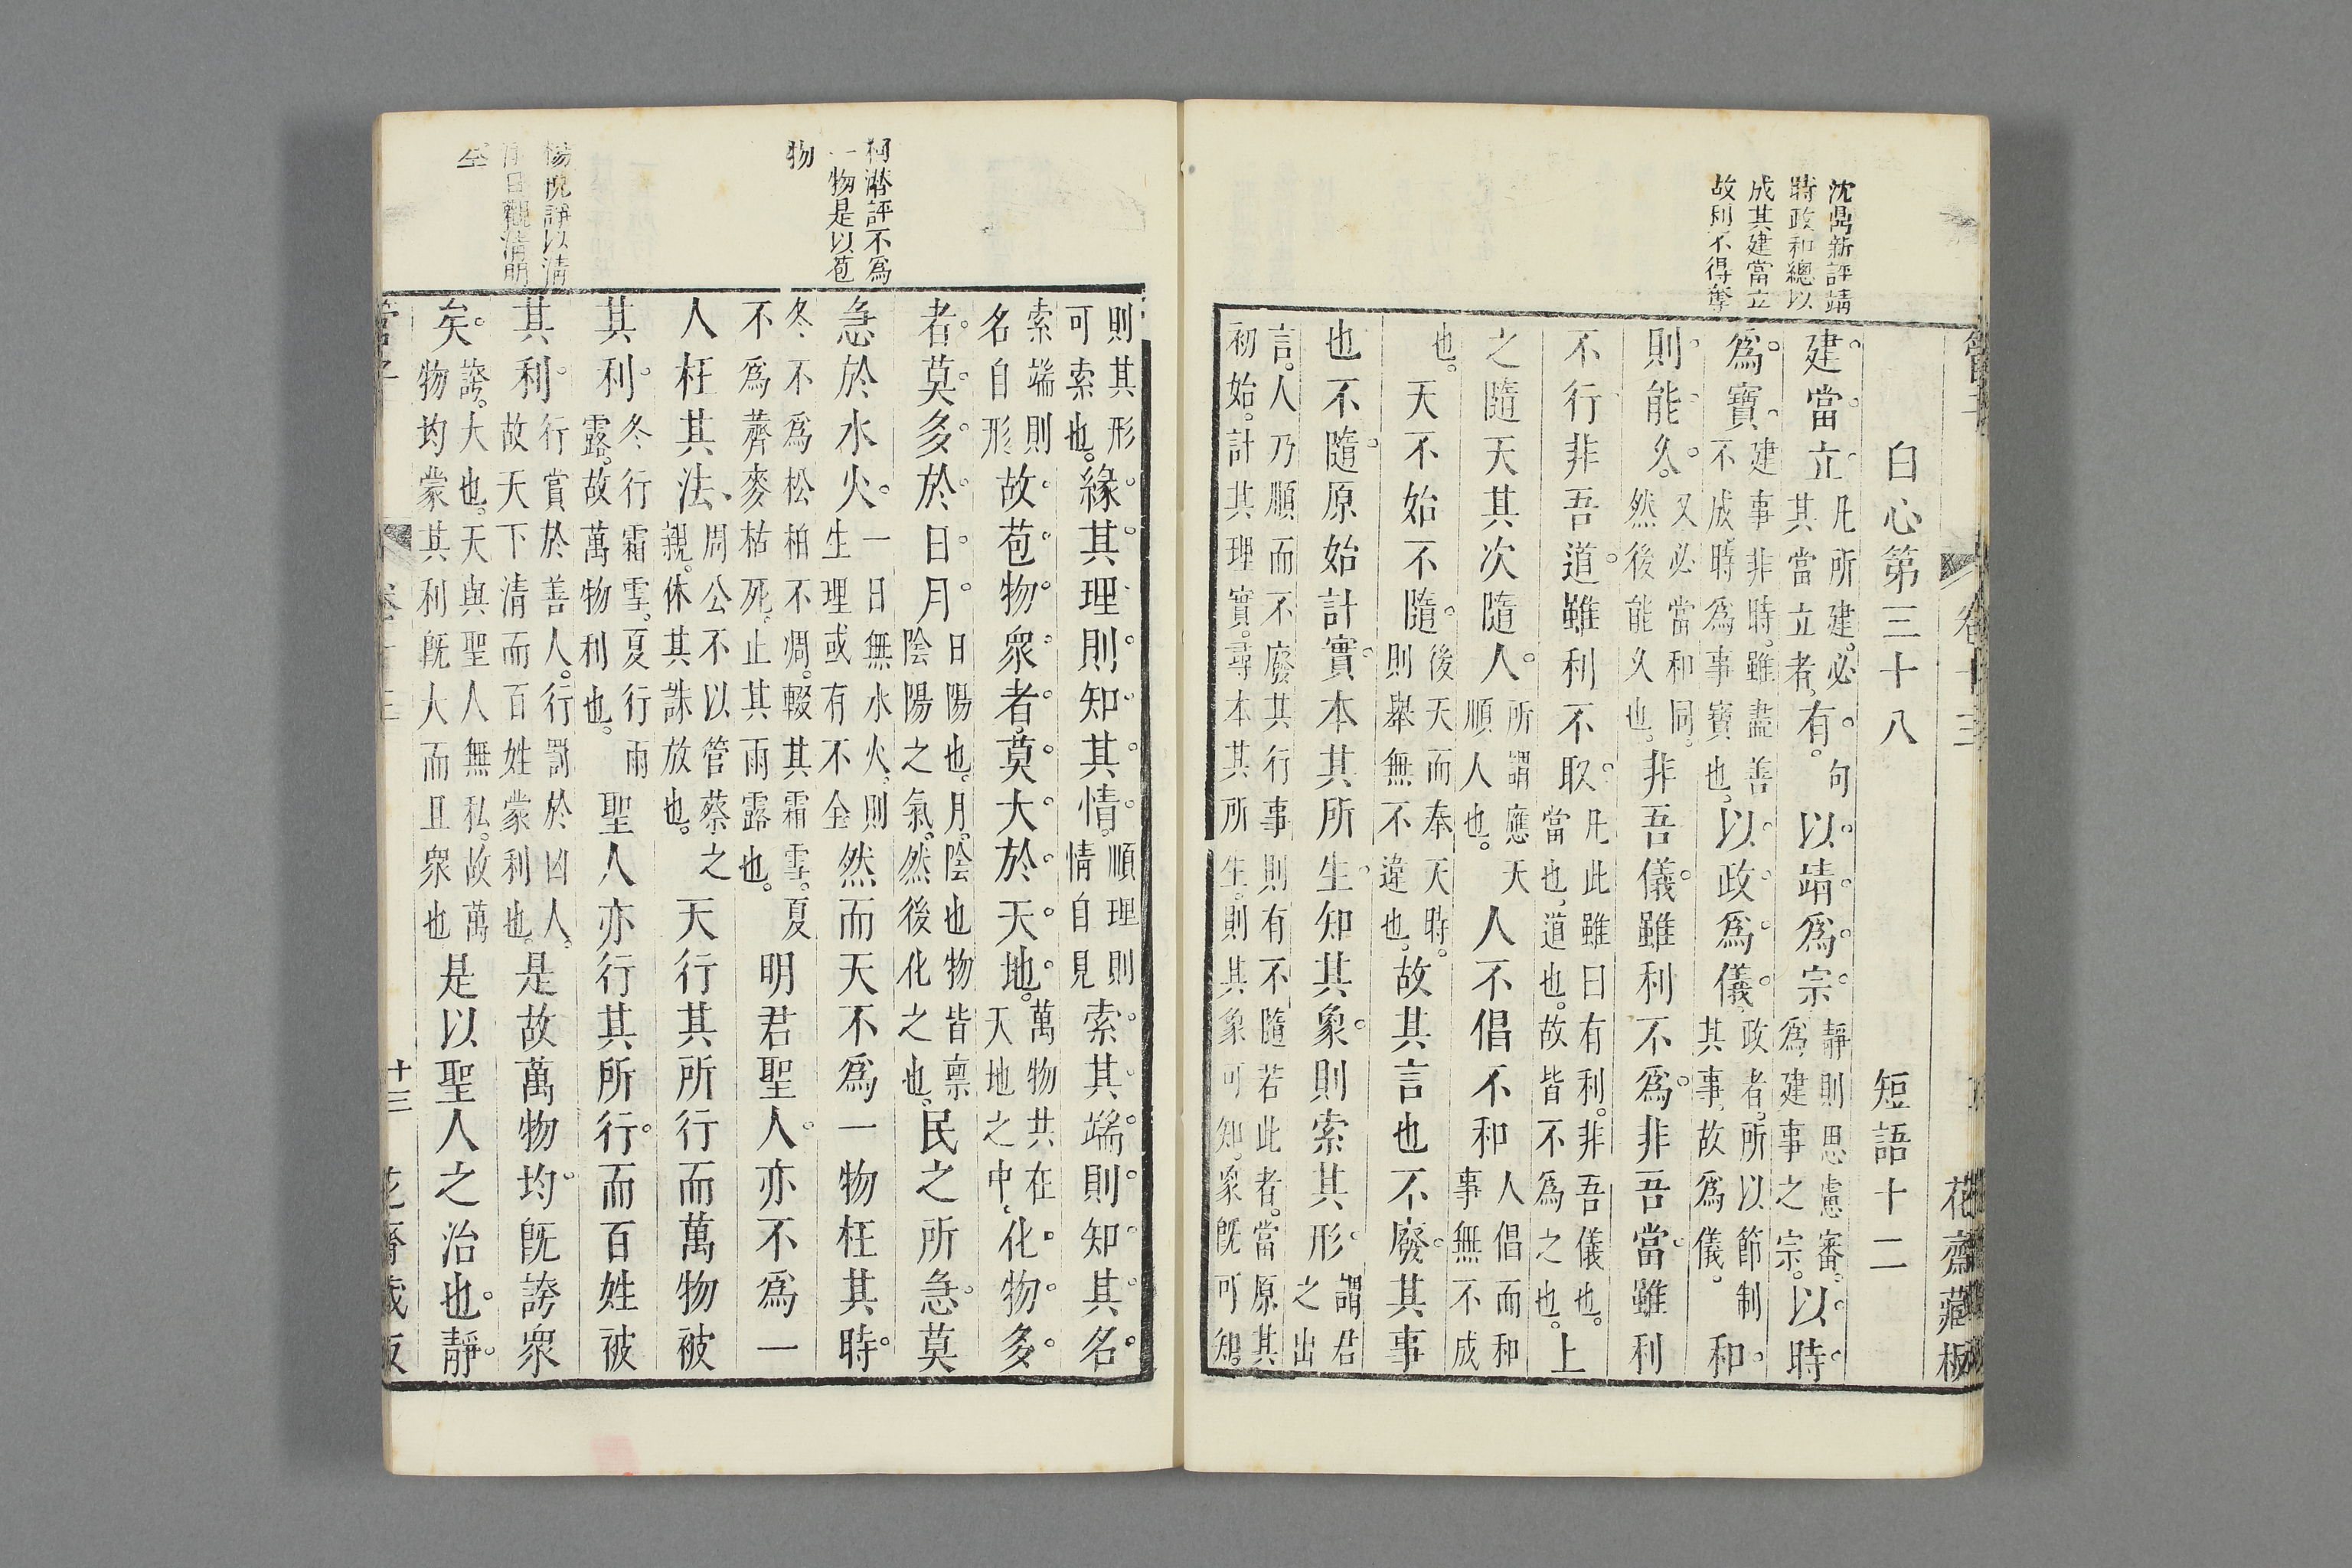 沈鼎新評靖
時政和總以
成其建當立
故利不得奪
白心第三十八　短語十二
建當立凡所建必其當立者有句以靖爲宗靜則思慮審爲建事之宗以時
爲寶建事非時雖盡善不成時爲事寶也以政爲儀政者所以節制其事故爲儀和
則能久又必當和同然後能久也非吾儀雖利不爲非吾當雖利
不行非吾道雖利不取凡此雖曰有利非吾儀也當也道也故皆不爲之也上
之隨天其次隨人所謂應天順人也人不倡不和人倡而和事無不成
也天不始不隨後天而奉天時則舉無不違也故其言也不廢其事
也不隨原始計實本其所生知其象則索其形謂君之出
言人乃順而不廢其行事則有不隨若此者當原其
初始計其理實尋本其所生則其象可知象既可知
柯潛評不爲
一物是以苞
物
則其形可索也緣其理則知其情順理則情自見索其端則知其名
索端則名自形故苞物衆者莫大於天地萬物共在天地之中化物多
者莫多於日月日陽也月陰也物皆禀陰陽之氣然後化之也民之所急莫
急於水火一日無水火則生理或有不全然而天不爲一物枉其時
冬不爲松柏不凋輟其霜雪夏不爲薺麥枯死止其雨露也明君聖人亦不爲一
人枉其法周公不以管蔡之親休其誅放也天行其所行而萬物被
其利冬行霜雪夏行雨露故萬物利也聖人亦行其所行而百姓被
其利行賞於善人行罰於凶人故天下清而百姓蒙利也是故萬物均既誇衆
矣誇大也天與聖人無私故萬物均蒙其利既大而且衆也是以聖人之治也靜
十三